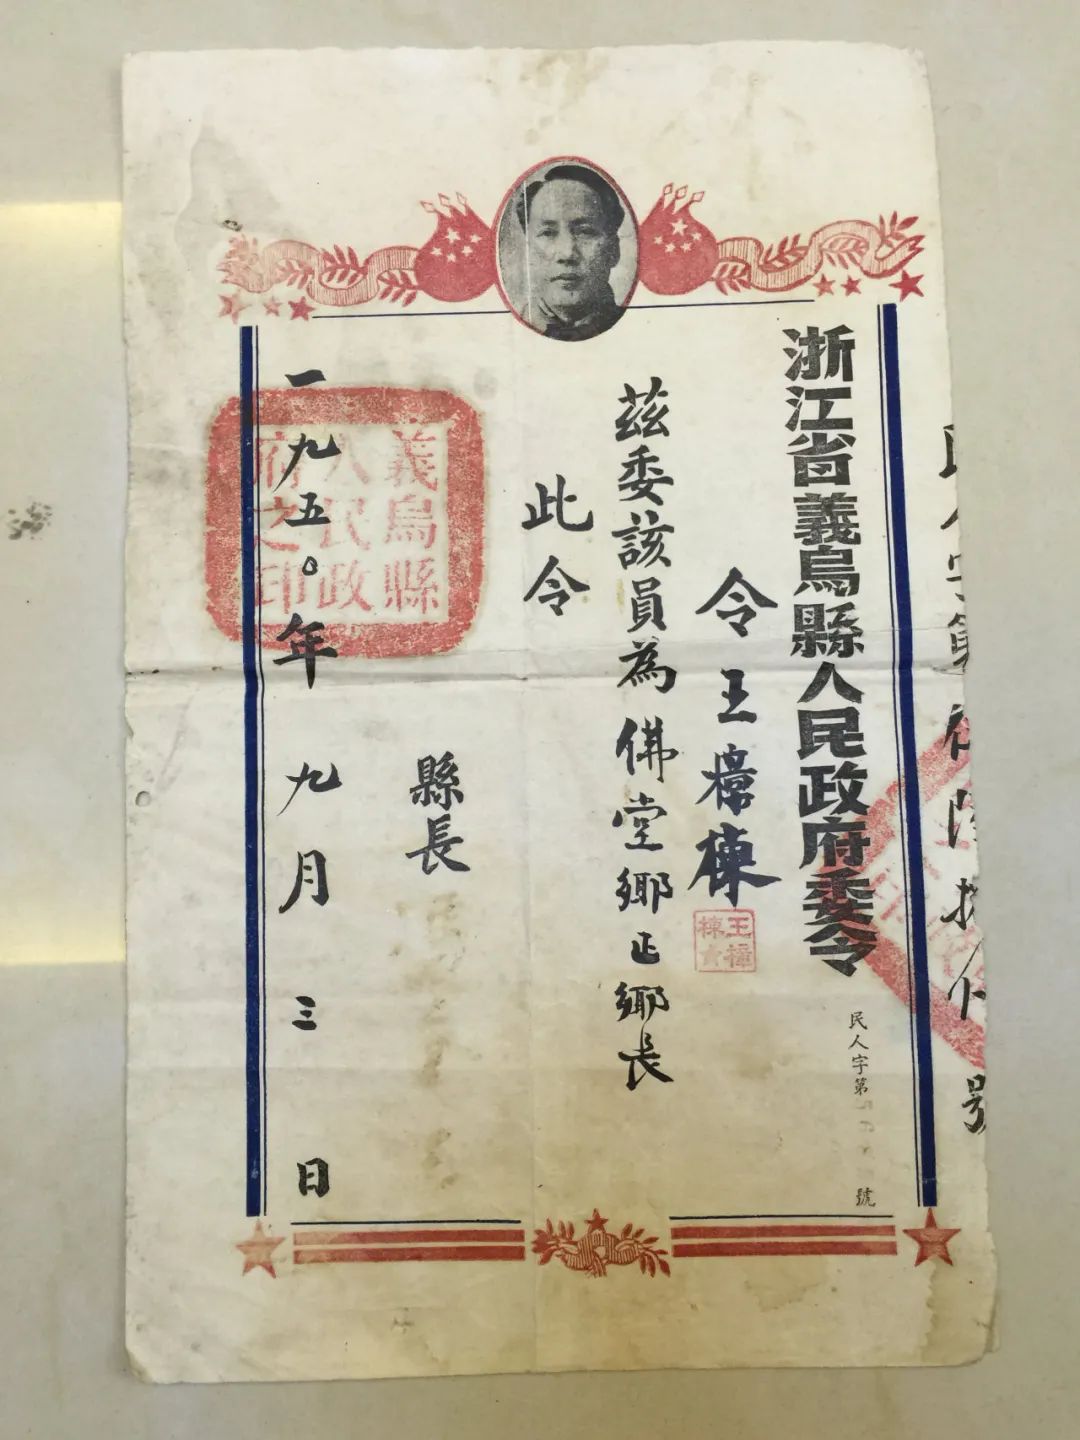 浙江省義烏縣人民政府委令
民人字第
號
令王樟棟
王樟棟
茲委該員為佛堂鄉正鄉長
此令
縣長
一九五〇年九月三日
義烏縣人民政府之印